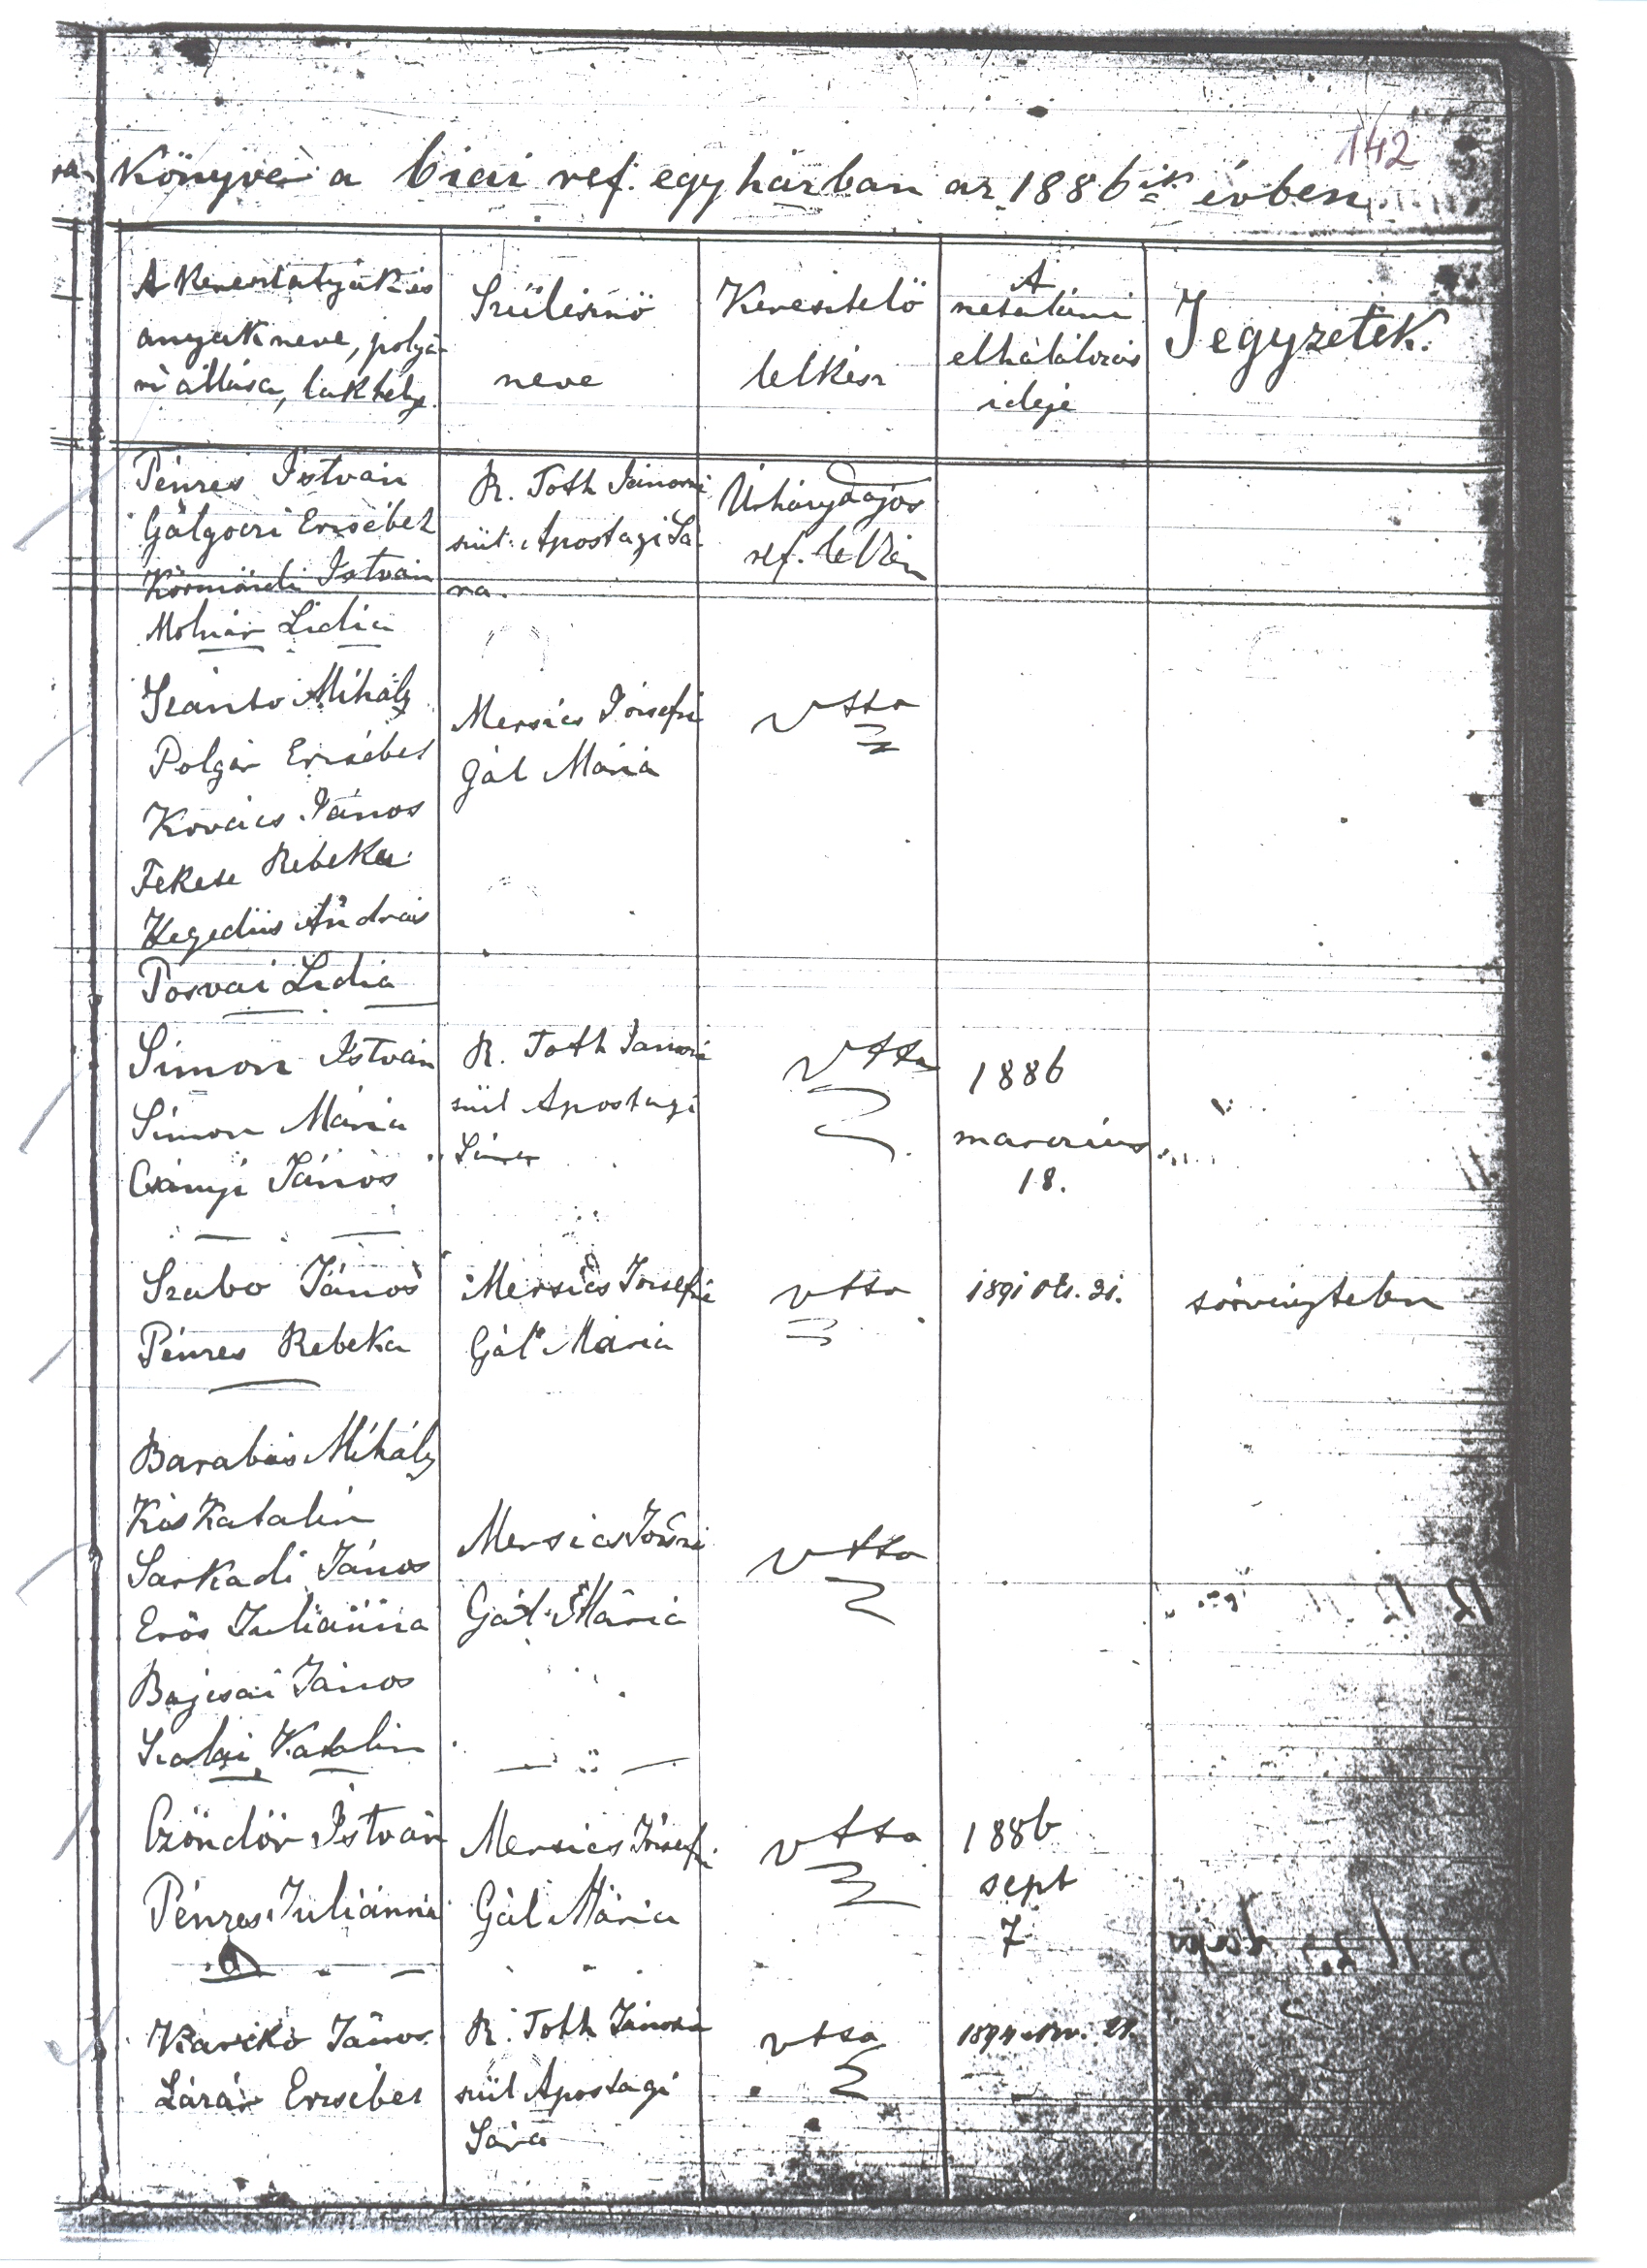 142
Könyve a biai ref. egyházban az 1886ik évben
A keresztatyák és
anyák neve, polgá-
ri állása, lakhelye.
Szülésznő
neve
Keresztelő
lelkész
A
netaláni
elhalálozás
ideje
Jegyzetek.
Pénzes István
Gálgoczi Erzsébet
Körmöndi István
Molnár Lidia
R. Toth Jánosné
szül. Apostagi Sá-
ra.
Úrházy Lajos
ref. lelkész
Szánto Mihály
Polgár Erzsébet
Kovács János
Fekete Rebeka
Hegedüs András
Posvai Lidia
Mersics Józsefné
Gál Mária
Utsa
Simon István
Simon Mária
Csányi János
R. Toth Jánosné
szül Apostagi
Sára
Utsa
1886
marczius
18.
Szabo János
Pénzes Rebeka
Mersics Józsefné
Gál Mária
Utsa
1891 okt. 21.
sörvénytelen
Barabás Mihály
Kis Katalin
Sarkadi János
Erős Juliánna
Bajcsai János
Szalai Katalin
Mersics Józsné
Gál Mária
Utsa
Czöndör István
Pénzes Juliánna
Mersics Józsefné
Gál Mária
Utsa
1886
sept
7
János
Lázár Erzsébet
R. Toth Jánosné
szül Apostagi
Sára
Utsa
1894 nov. 21.